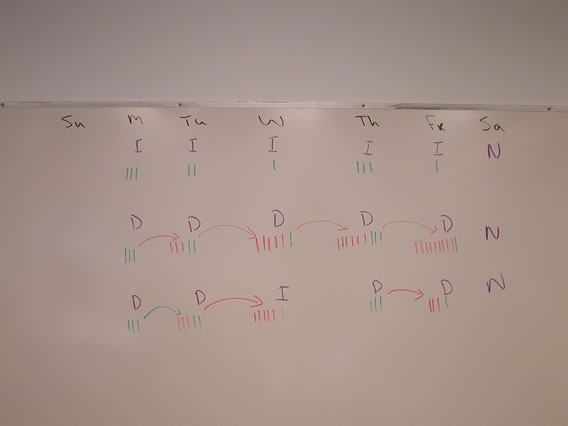 Su M Tu W Th Fr Sa
I I I I I N
||| || | ||| |
D D D D D N
||| ||||| |||||| ||||||||| ||||||||||
D D I D D N
||| ||||| |||||| ||| ||||